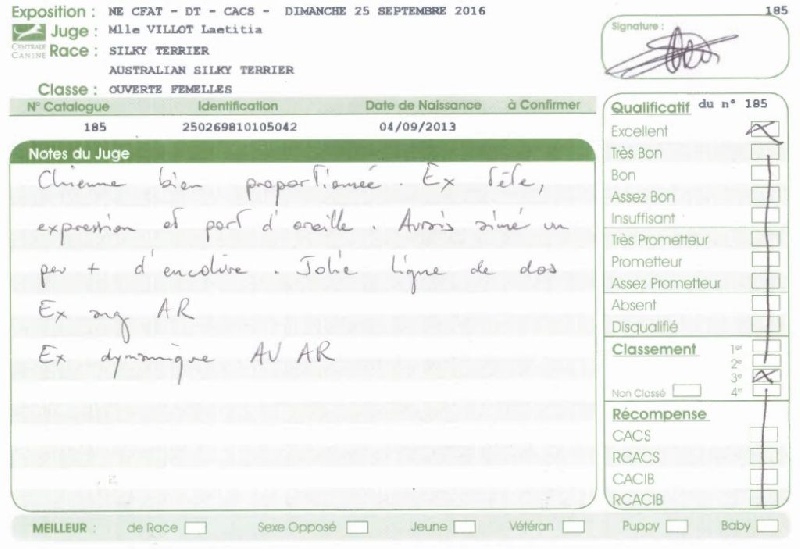 Exposition : NE CFAT - DT - CACS - DIMANCHE 25 SEPTEMBRE 2016 185
CENTRALE CANINE
Juge : Mlle VILLOT Laetitia
Signature :
Race : SILKY TERRIER
AUSTRALIAN SILKY TERRIER
Classe : OUVERTE FEMELLES
N° Catalogue Identification Date de Naissance à Confirmer
185 250269810105042 04/09/2013
Notes du Juge
Chienne bien proportionnée Ex tête,
expression et port d'oreille. Aurais aimé un
peu + d'encolure. Jolie ligne de dos
Ex ang AR
Ex dynamique AV AR
Qualificatif du n° 185
Excellent
Très Bon
Bon
Assez Bon
Insuffisant
Très Prometteur
Prometteur
Assez Prometteur
Absent
Disqualifié
Classement 1er
2e
3e
Non Classé 4e
Récompense
CACS
RCACS
CACIB
RCACIB
MEILLEUR : de Race Sexe Opposé Jeune Vétéran Puppy Baby